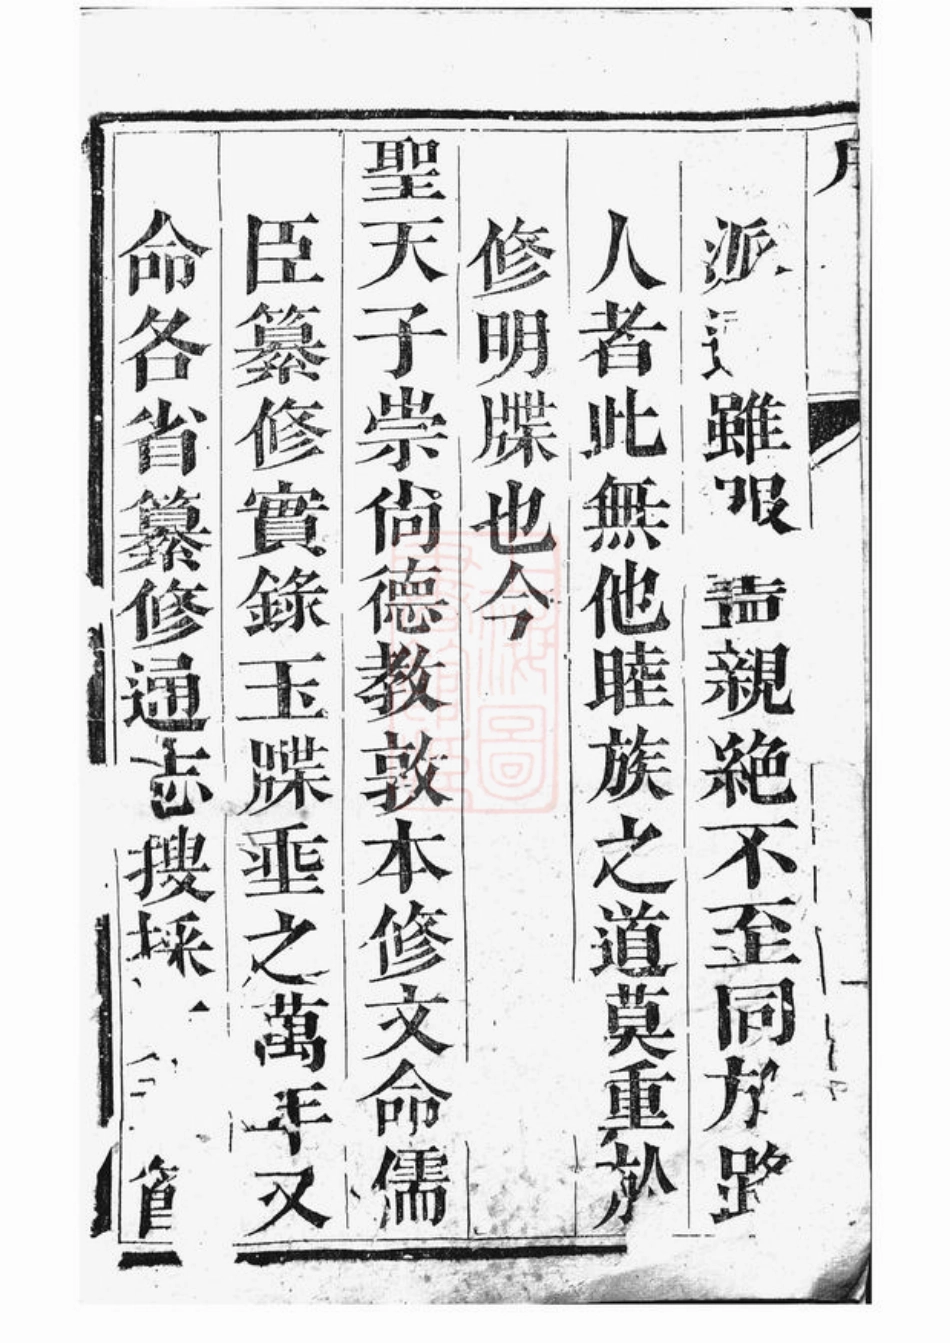 派遠雖服盡親絕不至同於路
人者此無他睦族之道莫重於
修明牒也今
聖天子崇尚德教敦本修文命儒
臣纂修實錄玉牒垂之萬年又
命各省纂修通志搜採